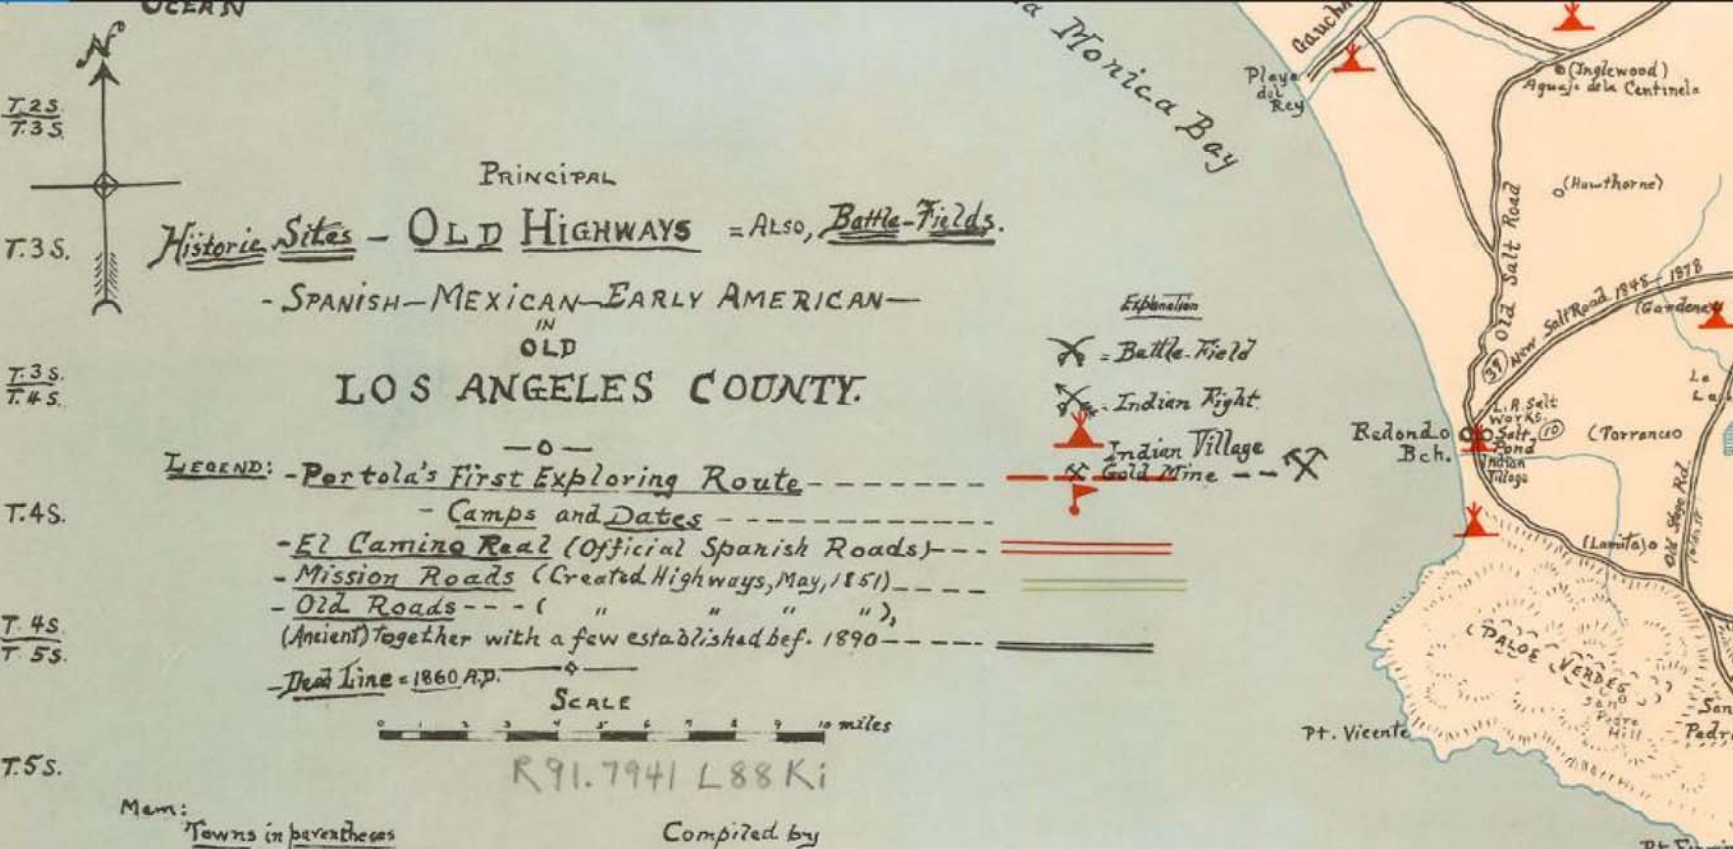 OCEAN
N
T.2S.
T.3S.
T.3S.
T.3S.
T.4S.
T.4S.
T.4S.
T.5S.
T.5S.
PRINCIPAL
Historic Sites – OLD HIGHWAYS = ALSO, Battle-Fields.
- SPANISH – MEXICAN – EARLY AMERICAN –
IN
OLD
LOS ANGELES COUNTY.
LEGEND: - Portola's First Exploring Route
- Camps and Dates
- El Camino Real (Official Spanish Roads)
- Mission Roads (Created Highways, May, 1851)
- Old Roads - - - ( " " " "),
(Ancient) Together with a few established bef. 1890
- Dead Line = 1860 A.D.
SCALE
0 1 2 3 4 5 6 7 8 9 10 miles
R91.7941 L88Ki
Mem:
Towns in parentheses
Compiled by
Explanation
= Battle-Field
- Indian Fight.
Indian Village
Gold Mine
Monica Bay
Playa
del
Rey
(Inglewood)
Aguaje de la Centinela
(Hawthorne)
Old Salt Road
New Salt Road 1848 - 1878
(Gardena
39
L.A. Salt
Works.
Salt
Pond
10
Indian
Village
Redondo
Bch.
(Torrance
(Lomita)
Old Stage Rd.
(PALOS VERDES
San
Pedro
Hill
San
Pedr
Pt. Vicente